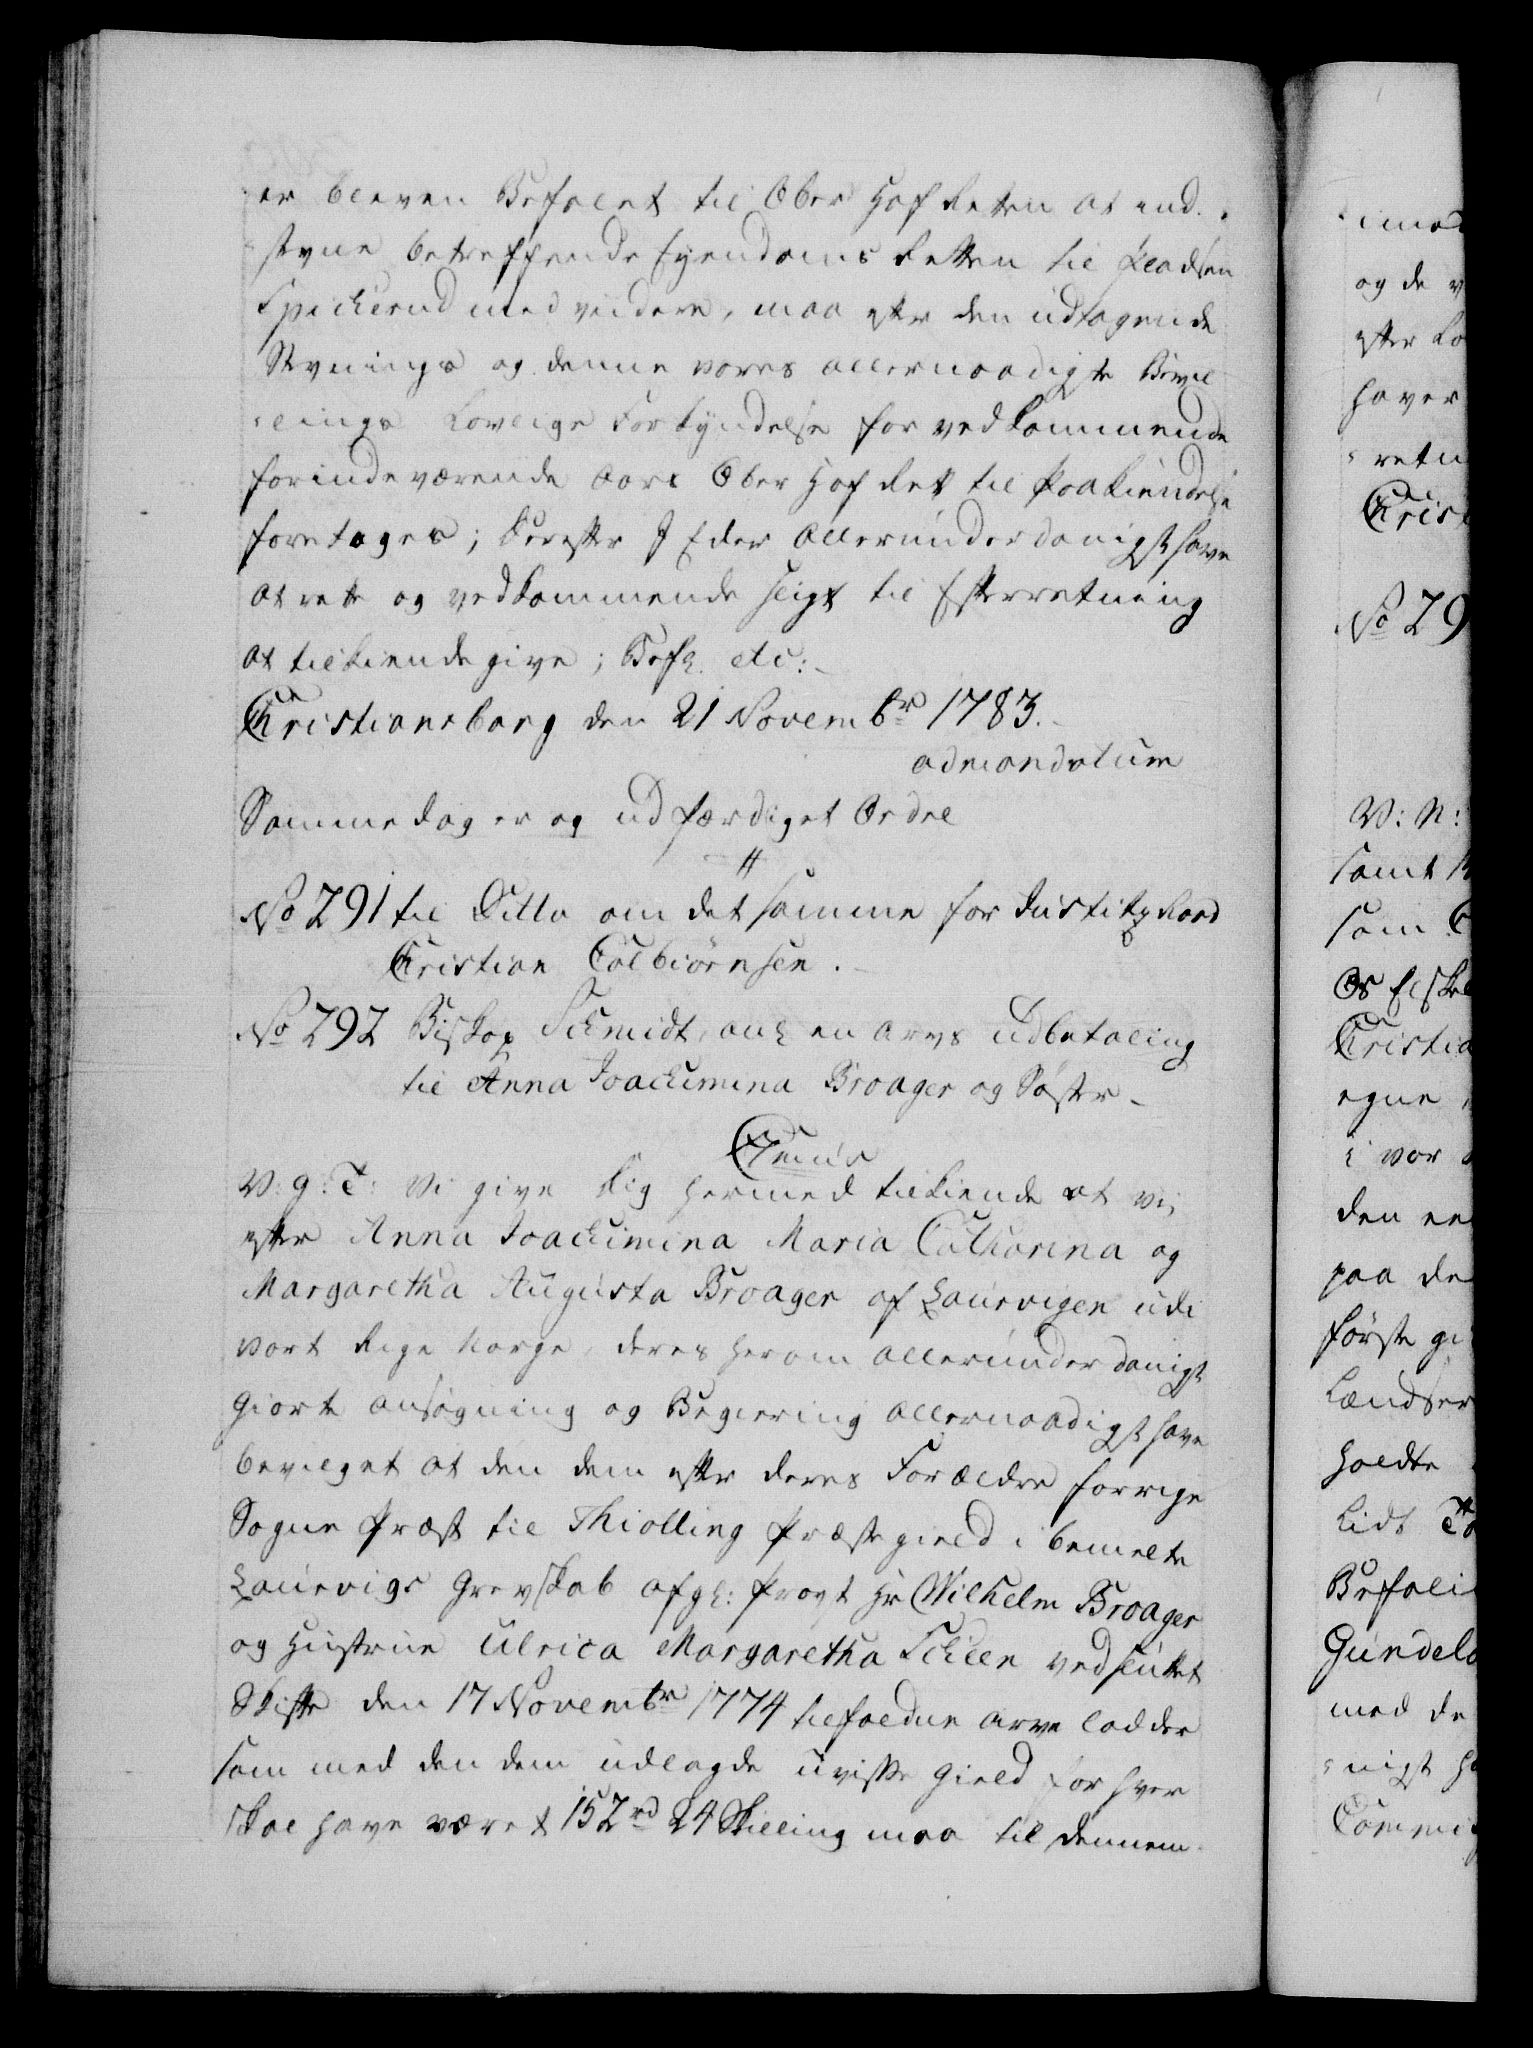 er bleven Befalet til Ober Hof Retten at ind-
stevne betreffende Eyendoms Retten til Pladsen
Spickerud med videre, maa efter den udtagende
Stevnings og denne vores allernaadigste Bevil-
lings Lovlige Forkyndelse for vedkommende
forindeværende Aars Ober Hof Ret til Paakiendelse
foretages; derefter I Eder allerunderdanigst have
at rette og vedkommende sligt til Efterretning
at tilkiendegive; Befl. etc:
Christiansborg den 21 Novembr 1783.
ad mandatum
Samme dag er og udfærdiget Ordre
No 291 til Ditto om det samme for Justitz Raad
Christian Colbiørnsen.
No 292 Biskop Schmidt, anl en Arvs udbetaling
til Anna Joachimina Broager og Søster
V: G: T: Vi give dig hermed tilkiende at vi,
efter Anna Joachimina Maria Catharina og
Margaretha Augusta Broager af Laurvigen udi
vort Rige Norge, deres herom allerunderdanigst
giorte ansøgning og Begiering allernaadigst have
bevilget at den dem efter deres Forældre forrige
Sogne Præst til Thiølling Præstegield i bemelte
Laurvigs Grevskab afgl: Provst Hr Wilhelm Broager
og Hustrue Ulrica Margaretha Scheen ved sluttet
Skifte den 17 Novembr 1774 tilfaldne arve lodder
som med den dem udlagde uvisse Gield for hver
skal have været 152 rd 24 Skilling maa til dennem
imod
og de
efter Lo
haver
retn
Chris
No 29
V: N:
samt
som C
Os Elske
Christia
egne
i vor
den ee
paa de
første gi
Lændser
holdte
Lidt
Befali
Gundela
med de
nigst ha
Commi